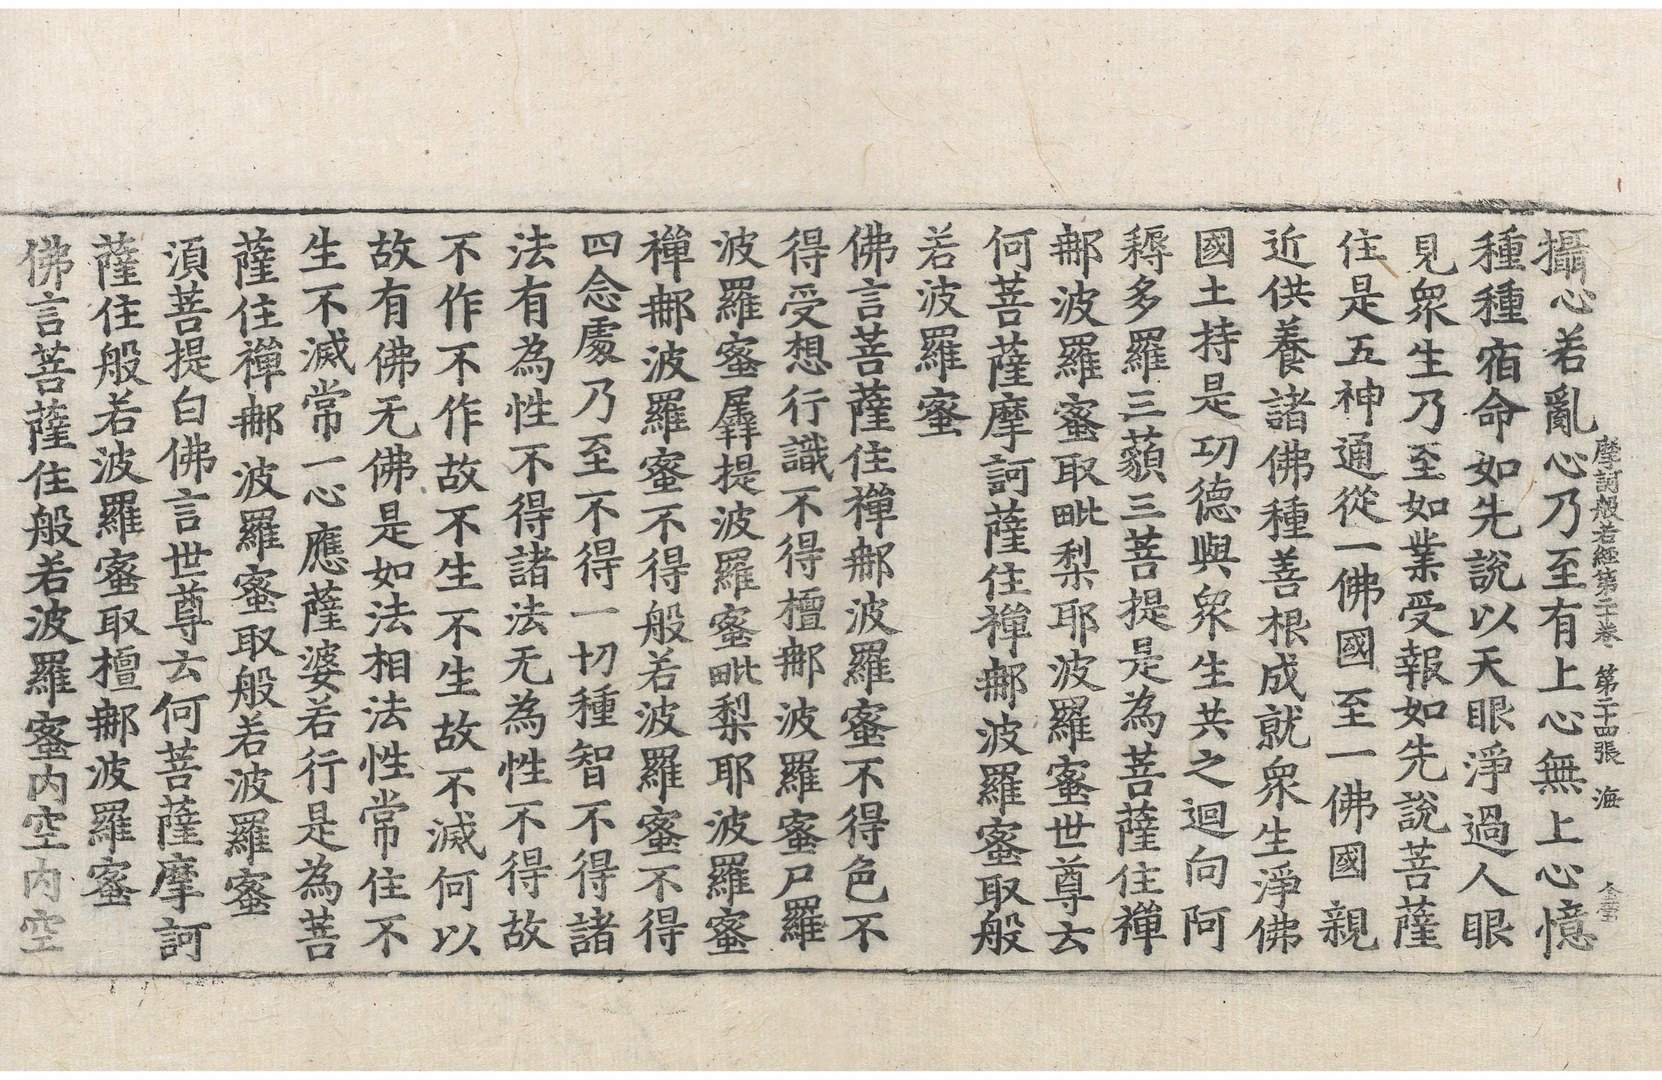 攝心若亂心乃至有上心無上心憶
摩訶般若經第二十卷 第二十四張 海
種種宿命如先說以天眼淨過人眼
見衆生乃至如業受報如先說菩薩
住是五神通從一佛國至一佛國親
近供養諸佛種善根成就衆生淨佛
國土持是功德與衆生共之迴向阿
耨多羅三藐三菩提是為菩薩住禪
那波羅蜜取毗梨耶波羅蜜世尊云
何菩薩摩訶薩住禪那波羅蜜取般
若波羅蜜
佛言菩薩住禪那波羅蜜不得色不
得受想行識不得檀那波羅蜜尸羅
波羅蜜羼提波羅蜜毗梨耶波羅蜜
禪那波羅蜜不得般若波羅蜜不得
四念處乃至不得一切種智不得諸
法有為性不得諸法无為性不得故
不作不作故不生不生故不滅何以
故有佛无佛是如法相法性常住不
生不滅常一心應薩婆若行是為菩
薩住禪那波羅蜜取般若波羅蜜
須菩提白佛言世尊云何菩薩摩訶
薩住般若波羅蜜取檀那波羅蜜
佛言菩薩住般若波羅蜜内空内空